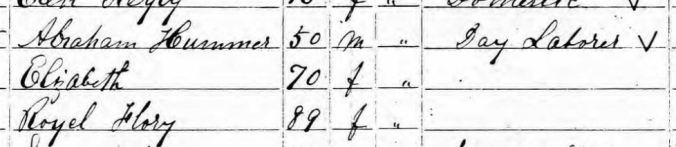 Domestic √
Abraham Hummer 50 m " Day Laborer √
Elizabeth 70 f "
Royel Flory 89 f "